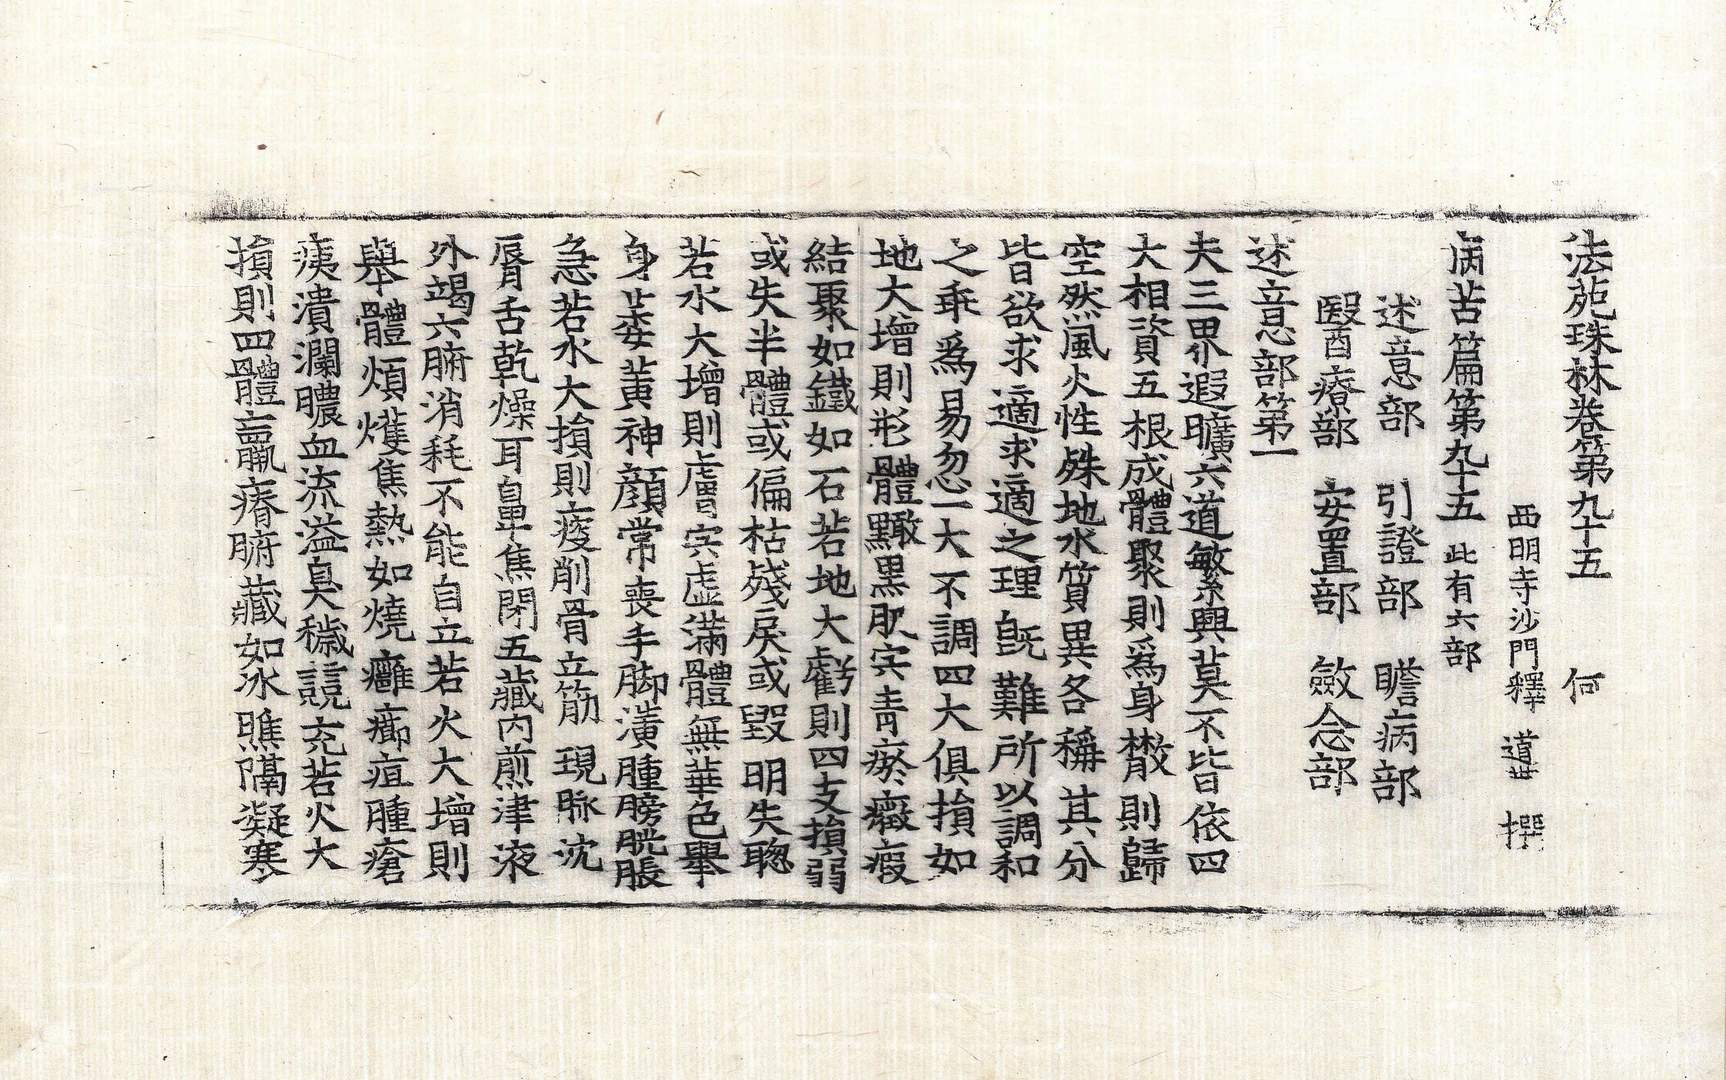 法苑珠林卷第九十五　何
西明寺沙門釋 道世 撰
病苦篇第九十五 此有六部
述意部　引證部　瞻病部
醫療部　安置部　斂念部
述意部第一
夫三界遐曠六道繁興莫不皆依四
大相資五根成體聚則爲身散則歸
空然風火性殊地水質異各稱其分
皆欲求適求適之理旣難所以調和
之乖爲易忽一大不調四大俱損如
地大增則形體黮黑肌肉青瘀癥瘕
結聚如鐵如石若地大虧則四支損弱
或失半體或偏枯殘戾或毀明失聰
若水大增則膚肉虛滿體無華色舉
身萎黃神顔常喪手脚潢腫膀胱脹
急若水大損則瘦削骨立筋現脉沈
脣舌乾燥耳鼻焦閉五藏內煎津液
外竭六腑消耗不能自立若火大增則
舉體煩爟焦熱如燒癰癤疽腫瘡
痍潰爛膿血流溢臭穢競充若火大
損則四體羸瘠腑藏如冰焦隔凝寒